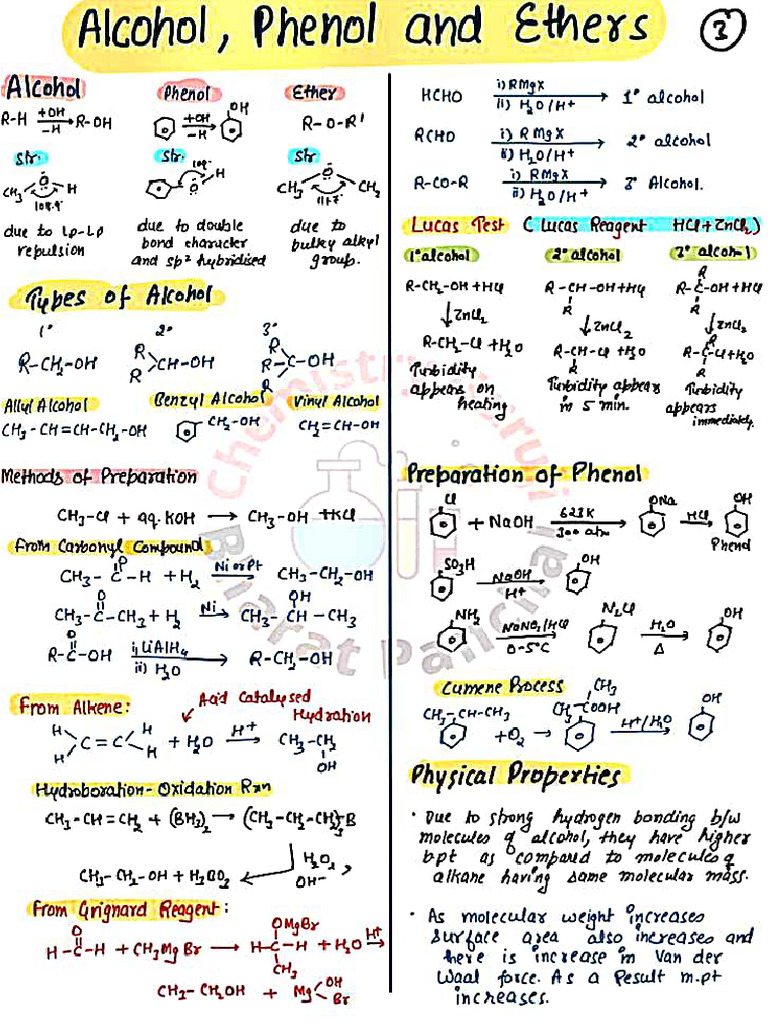 Alcohol, Phenol and Ethers
3
Alcohol
R-H +OH -H R-OH
Str.
CH₃ O H
108.9°
due to lp-lp
repulsion
Phenol
+OH -H OH
Str.
109°
O H
due to double
bond character
and sp² hybridised
Ether
R-O-R'
Str
CH₃ O CH₃
111.7°
due to
bulky alkyl
group.
Types of Alcohol
1° 2° 3°
R-CH₂-OH
R R CH-OH
R R R C-OH
Allyl Alcohol Benzyl Alcohol Vinyl Alcohol
CH₃-CH=CH-CH₂-OH CH₂-OH CH₂=CH-OH
Methods of Preparation
CH₃-Cl + aq. KOH → CH₃-OH + KCl
From Carbonyl Compound
CH₃-C-H + H₂ Ni or Pt → CH₃-CH₂-OH
CH₃-C(=O)-CH₃ + H₂ Ni → CH₃-CH(OH)-CH₃
R-C(=O)-OH i) LiAlH₄ ii) H₂O → R-CH₂-OH
From Alkene:
Acid Catalysed
Hydration
H H C=C H H + H₂O H⁺ → CH₃-CH₂ OH
Hydroboration-Oxidation Rxn
CH₃-CH=CH₂ + (BH₃)₂ → (CH₃-CH₂-CH₂)₃B
H₂O₂, OH⁻
CH₃-CH₂-OH + H₃BO₃
From Grignard Reagent:
H-C(=O)-H + CH₃MgBr → H-C(OMgBr)(CH₃)-H + H₂O H⁺ →
CH₃-CH₂OH + Mg OH Br
HCHO i) RMgX ii) H₂O/H⁺ → 1° alcohol
RCHO i) RMgX ii) H₂O/H⁺ → 2° alcohol
R-CO-R i) RMgX ii) H₂O/H⁺ → 3° Alcohol.
Lucas Test (Lucas Reagent HCl + ZnCl₂)
1° alcohol
R-CH₂-OH + HCl
↓ ZnCl₂
R-CH₂-Cl + H₂O
Turbidity
appears on
heating
2° alcohol
R-CH-OH + HCl
R
↓ ZnCl₂
R-CH-Cl + H₂O
R
Turbidity appears
in 5 min.
3° alcohol
R
R-C-OH + HCl
R
↓ ZnCl₂
R
R-C-Cl + H₂O
R
Turbidity
appears
immediately.
Preparation of Phenol
Cl + NaOH 623K 300 atm → ONa HCl → OH
Phenol
SO₃H NaOH H⁺ → OH
NH₂ NaNO₂/HCl 0-5°C → N₂Cl H₂O Δ → OH
Cumene Process
CH₃-CH-CH₃ + O₂ → CH₃ CH₃-C-OOH H⁺/H₂O → OH
Physical Properties
• Due to strong hydrogen bonding b/w
molecules of alcohol, they have higher
bpt as compared to molecules of
alkane having same molecular mass.
• As molecular weight increases
surface area also increases and
there is increase in Van der
Waal force. As a Result m.pt
increases.